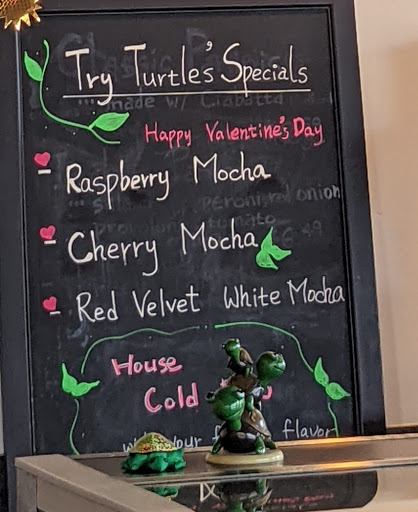 Try Turtles' Specials
made w/ Ciabatta
Happy Valentine's Day
- Raspberry Mocha
onion
- Cherry Mocha
- Red Velvet White Mocha
House
Cold
your flavor